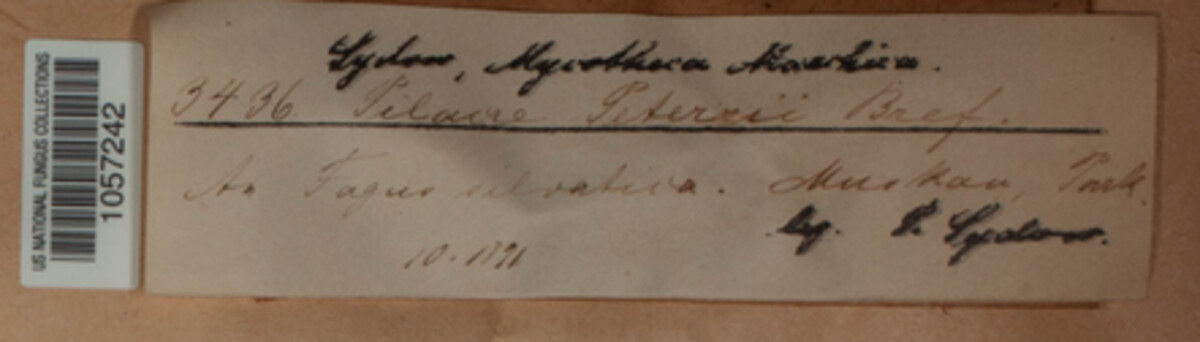 US NATIONAL FUNGUS COLLECTIONS
1057242
Sydow, Mycotheca Marchica.
3436. Pilacre Petersii Bref.
An Fagus silvatica. Muskau, Park.
leg. P. Sydow.
10.1891